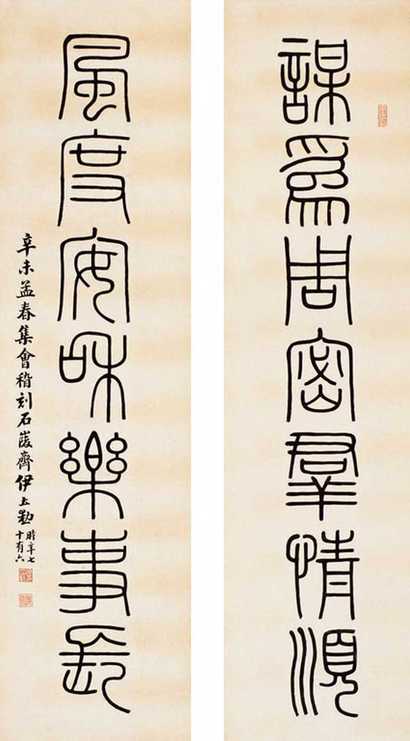 謀爲周密羣情順
風度安和樂事長
辛未孟春集會稽刻石峻齋伊立勳時年七
十有六